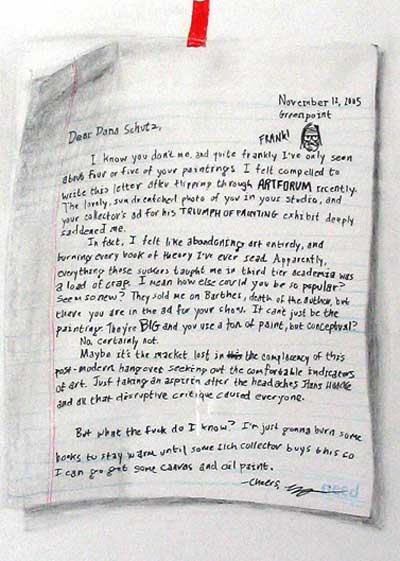 November 12, 2005
Greenpoint
Dear Dana Schutz,
FRANK!
I know you don't me, and quite frankly I've only seen
about four or five of your paintings I felt compelled to
write this letter after flipping through ARTFORUM recently.
The lovely, sun drenched photo of you in your studio, and
your collector's ad for his TRIUMPH OF PAINTING exhibit deeply
saddened me.
In fact, I felt like abandoning art entirely, and
burning every book of theory I've ever read. Apparently,
everything those suckers taught me in third tier academia was
a load of crap. I mean how else could you be so popular?
Seem so new? They sold me on Barthes, death of the author, but
there you are in the ad for your show. It can't just be the
paintings They're BIG and you use a ton of paint, but conceptual?
No, certainly not.
Maybe it's the market lost in the complacency of this
post-modern hangover seeking out the comfortable indicators
of art. Just taking an aspirin after the headaches Hans Haacke
and all that disruptive critique caused everyone.
But what the fuck do I know? I'm just gonna burn some
books to stay warm until some rich collector buys this so
I can go get some canvas and oil paint.
-Cheers,
need